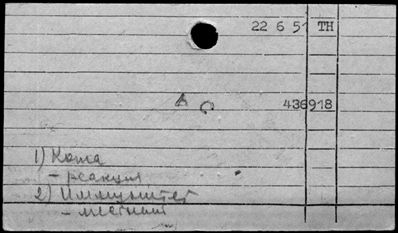 22 6 51 TH
436918
1) Кожа
- реакция
2) Иммунитет
- местный